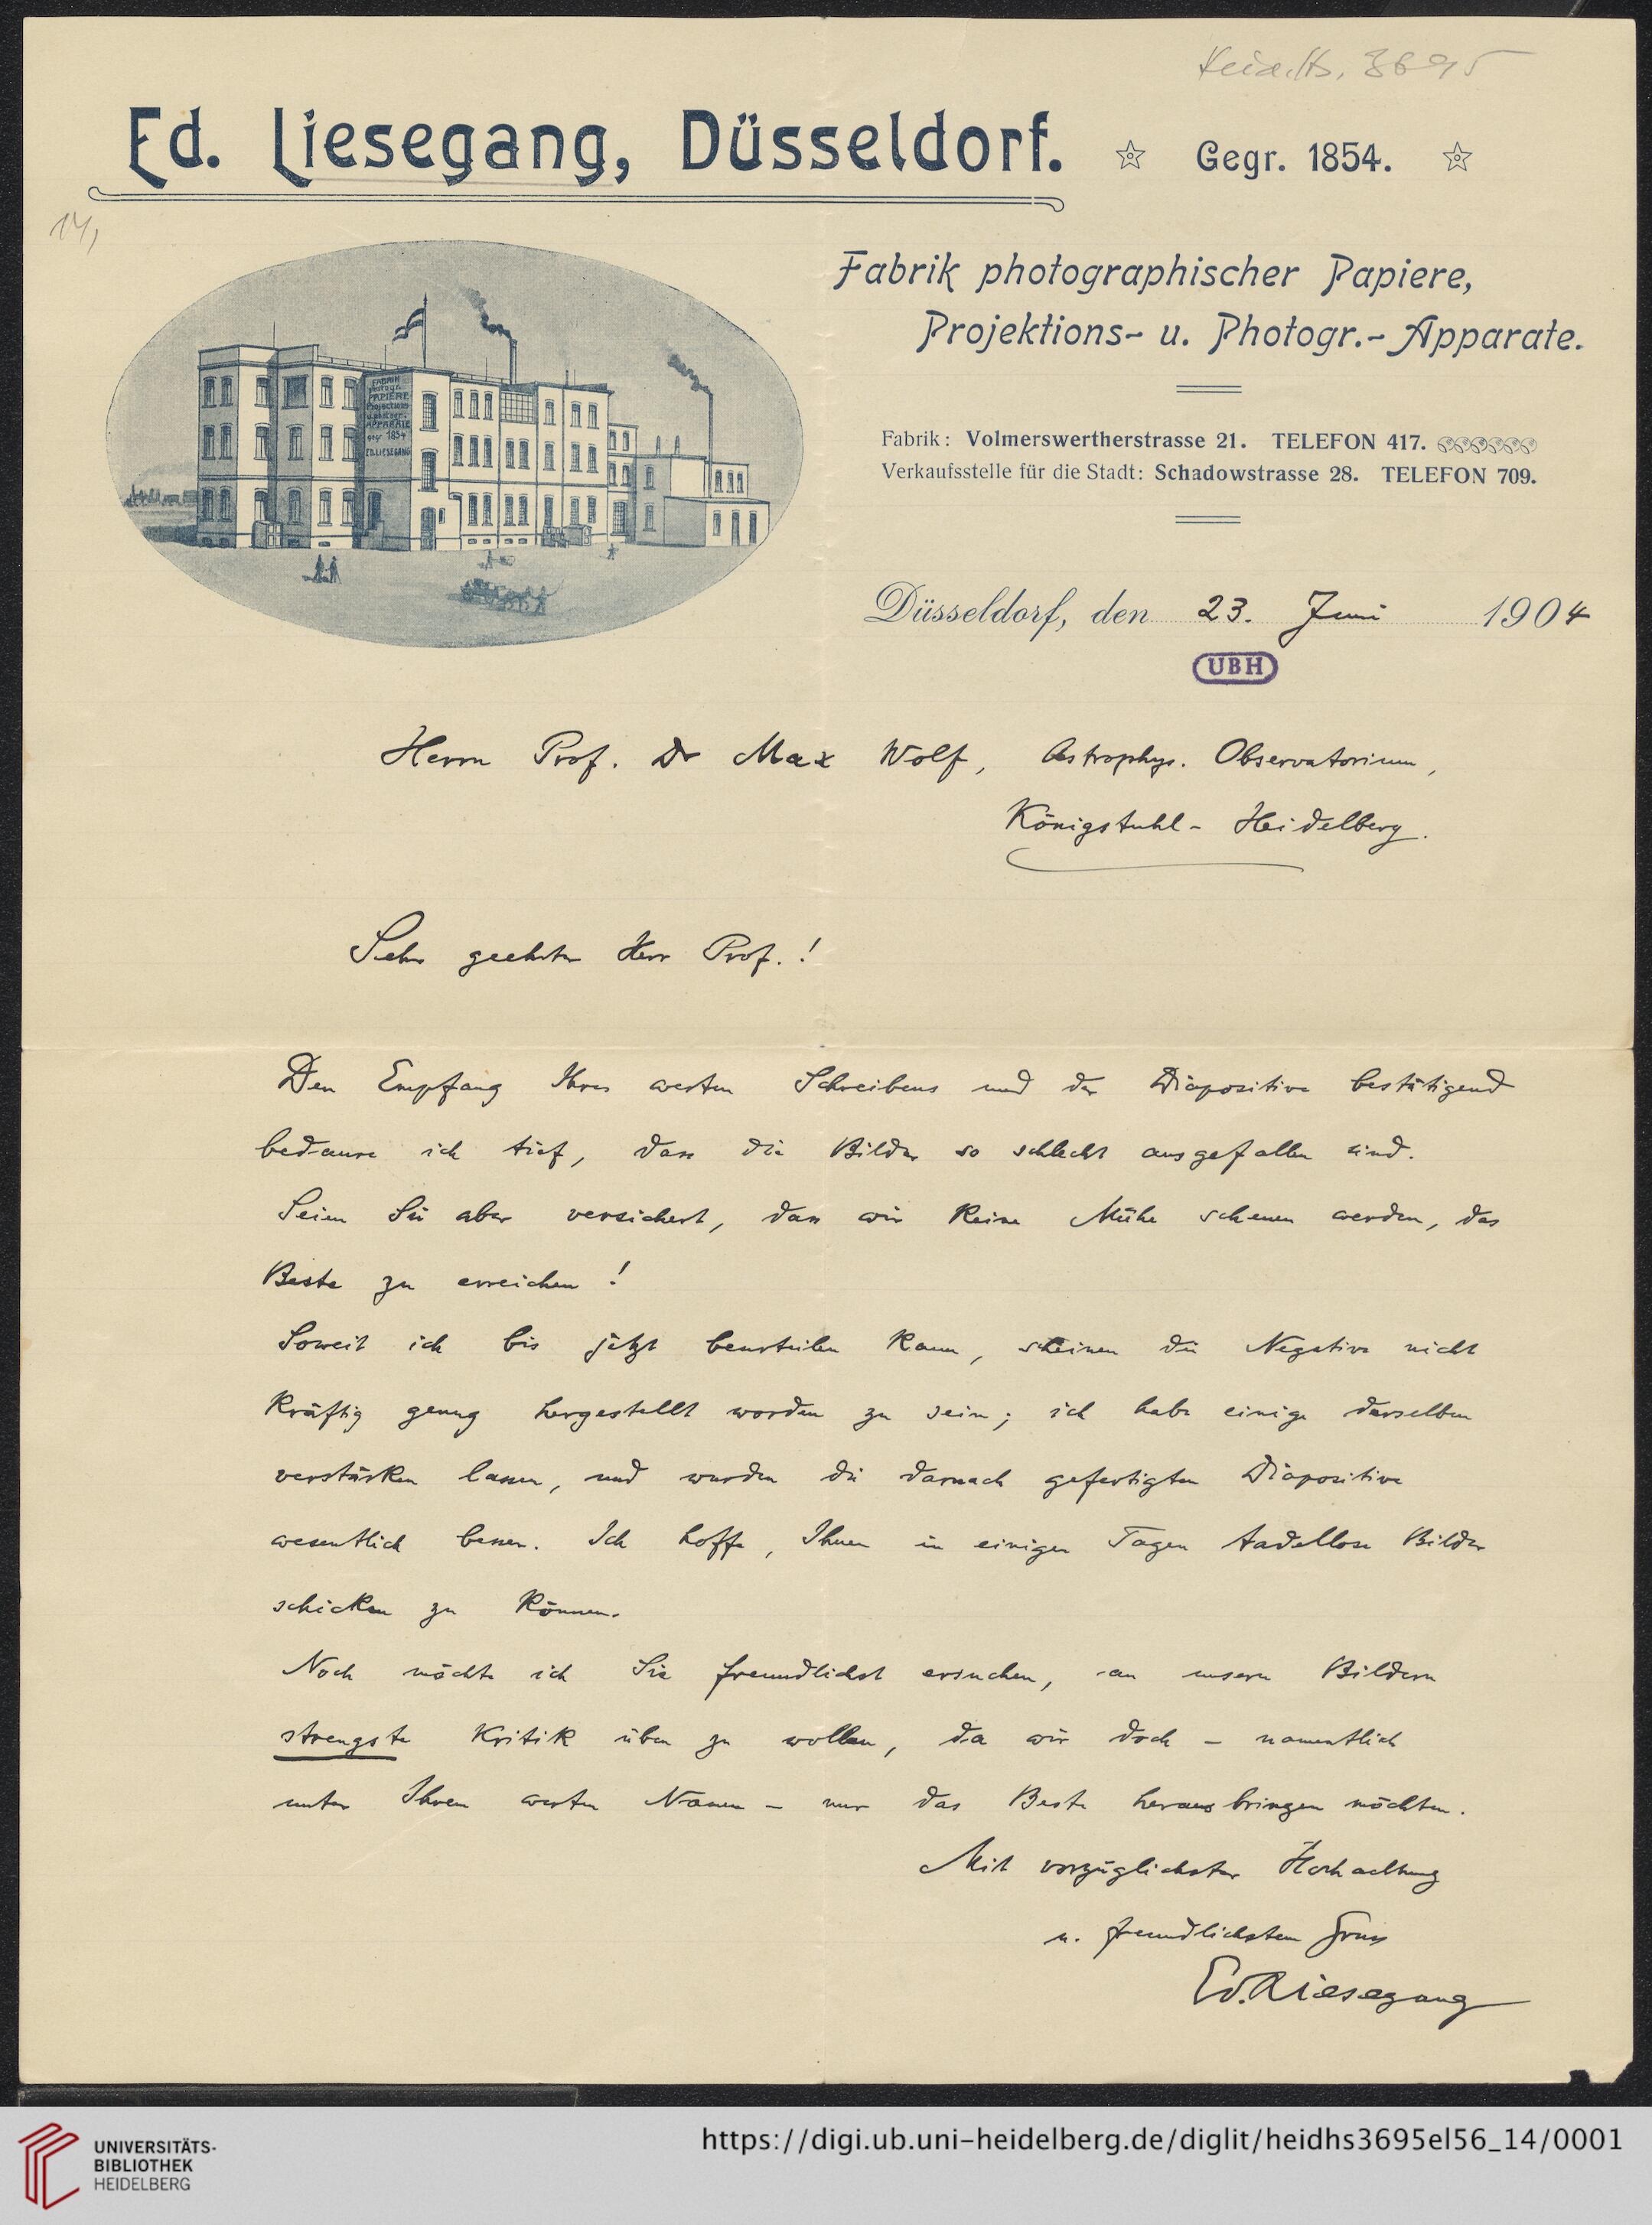 Heid. Hs. 3695
Ed. Liesegang, Düsseldorf. ☆ Gegr. 1854. ☆
14,
Fabrik photographischer Papiere,
Projektions- u. Photogr.-Apparate.
FABRIK
photogr.
PAPIERE
Projections
u. photogr.
APPARATE
gegr 1854
ED. LIESEGANG
Fabrik: Volmerswertherstrasse 21. TELEFON 417.
Verkaufsstelle für die Stadt: Schadowstrasse 28. TELEFON 709.
Düsseldorf, den 23. Juni 1904
UBH
Herrn Prof. Dr Max Wolf, Astrophys. Observatorium,
Königstuhl - Heidelberg.
Sehr geehrter Herr Prof.!
Den Empfang Ihres werten Schreibens und der Diapositive bestätigend
bedaure ich tief, dass die Bilder so schlecht ausgefallen sind.
Seien Sie aber versichert, dass wir keine Mühe scheuen werden, das
Beste zu erreichen!
Soweit ich bis jetzt beurteilen kann, scheinen die Negative nicht
kräftig genug hergestellt worden zu sein; ich habe einige derselben
verstärken lassen, und wurden die darnach gefertigten Diapositive
wesentlich besser. Ich hoffe, Ihnen in einigen Tagen tadellose Bilder
schicken zu können.
Noch möchte ich Sie freundlichst ersuchen, an unsern Bildern
strengste Kritik üben zu wollen, da wir doch - namentlich
unter Ihrem werten Namen - nur das Beste herausbringen möchten.
Mit vorzüglichster Hochachtung
u. freundlichstem Gruss
Ed. Liesegang
UNIVERSITÄTS-
BIBLIOTHEK
HEIDELBERG
https://digi.ub.uni-heidelberg.de/diglit/heidhs3695el56_14/0001